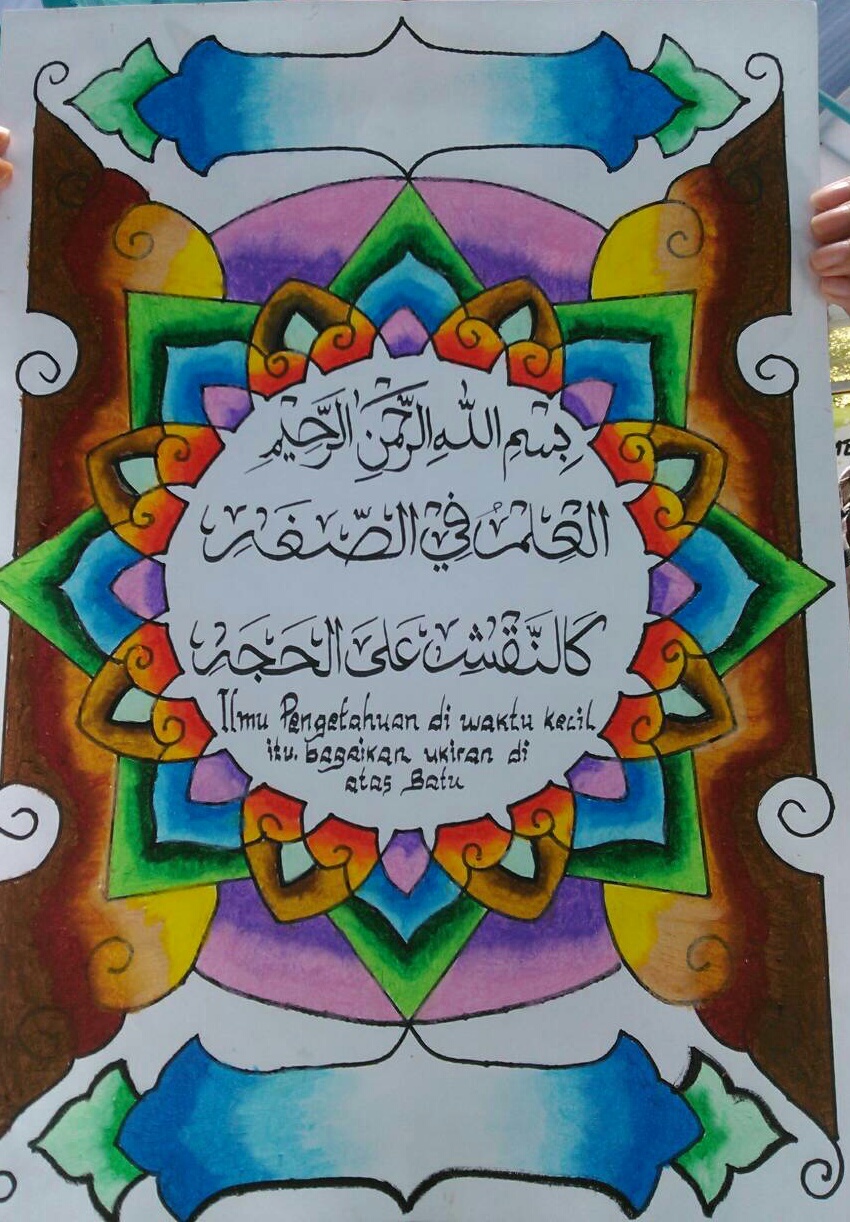 بِسْمِ اللّٰهِ الرَّحْمَنِ الرَّحِيْمِ
العِلْمُ فِي الصِّغَرِ
كَالنَّقْشِ عَلَى الحَجَرِ
Ilmu Pengetahuan di waktu kecil
itu. bagaikan ukiran di
atas Batu